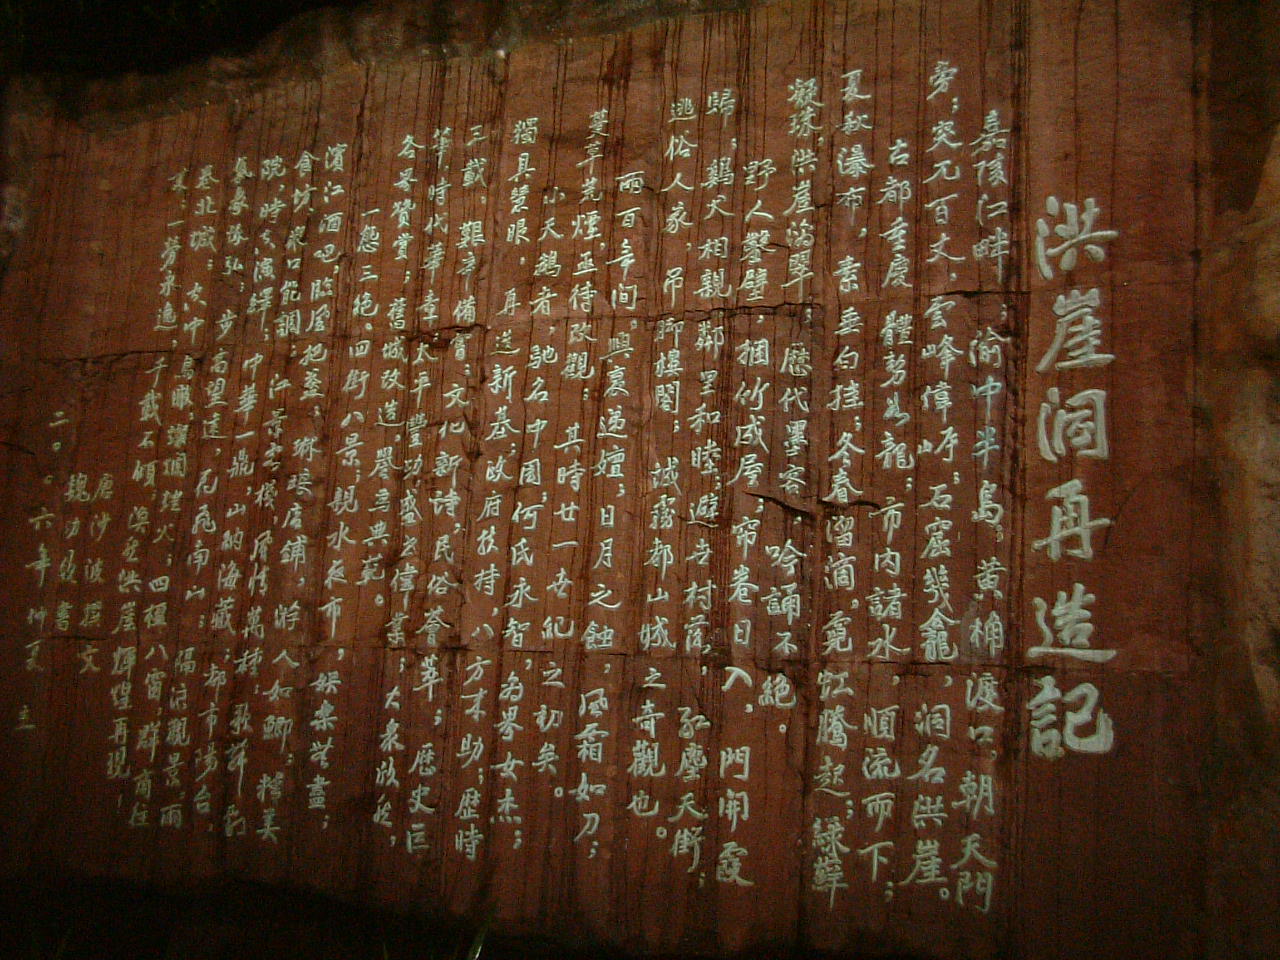 洪崖洞再造記
嘉陵江畔；渝中半島，黃桷渡口，朝天門
旁；突兀百丈，雲峰偉岸；石窟幾龕，洞名洪崖。
古都重慶，體勢為龍；市內諸水，順流而下；
夏秋瀑布，素垂白挂；冬春溜滴，霓虹騰起；綠蘚
凝珠，洪崖滴翠；歷代墨客，吟誦不絕。
野人鑿壁，捆竹成屋，帘卷日入，門開霞
歸；鷄犬相親，鄰里和睦；避世村落，紅塵天街；
逃俗人家，吊脚樓閣；誠霧都山城之奇觀也。
而百年間，興衰递嬗；日月之蝕，風霜如刀；
蔓草荒煙，亟待改觀；其時廿一世紀之初矣。
小天鵝者，馳名中國；何氏永智，為界女杰；
獨具慧眼，再造新基；政府扶持，八方才助；歷時
三載，艱辛備嘗；文化新诗，民俗薈萃；歷史巨
筆，時代華章；太平豐功，盛世偉業；大衆欣然，
各界贊賞；舊城改造，譽為典范。
一態三絕，四街八景；親水夜市，娛樂無盡；
濱江酒吧，臨風把盞；琳琅店鋪，游人如鯽；精美
食坊，衆口能調；江景客棧，風情萬種；歌舞劇
院，時令演繹；中華一鼎，山納海藏；都市陽台，
氣象恢弘；步高望遠，南山；隔江觀景，雨
暮北城；火中鳥瞰，爛燭煌火；四極八窗，群商往
一勞永逸；千載不傾；洪崖輝煌再現！
唐沙波撰文
魏功 書
二〇〇六年仲夏 立